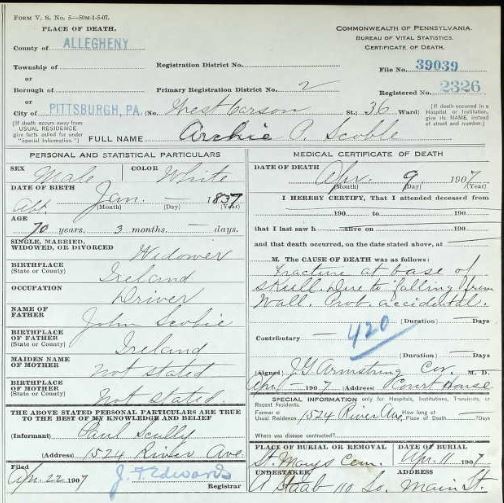 FORM V. S. No. 5—50M-1-5-07.
PLACE OF DEATH.
County of ALLEGHENY
Township of
or
Borough of
or
City of PITTSBURGH, PA. (No. West Carson St.; 36 Ward)
COMMONWEALTH OF PENNSYLVANIA.
BUREAU OF VITAL STATISTICS.
CERTIFICATE OF DEATH.
Registration District No.
File No. 39039
Primary Registration District No. 2
Registered No. 2326
[If death occurs away from USUAL RESIDENCE give facts called for under "Special Information."]
[If death occurred in a Hospital or Institution, give its NAME instead of street and number.]
FULL NAME Archie P. Scoble
PERSONAL AND STATISTICAL PARTICULARS
SEX Male COLOR White
DATE OF BIRTH
Abt. Jan. — 1837
(Month) (Day) (Year)
AGE
70 years, 3 months — days.
SINGLE, MARRIED,
WIDOWED, OR DIVORCED Widower
BIRTHPLACE
(State or County) Ireland
OCCUPATION Driver
NAME OF
FATHER John Scobie
BIRTHPLACE
OF FATHER
(State or County) Ireland
MAIDEN NAME
OF MOTHER Not stated
BIRTHPLACE
OF MOTHER
(State or County) Not stated
THE ABOVE STATED PERSONAL PARTICULARS ARE TRUE
TO THE BEST OF MY KNOWLEDGE AND BELIEF
(Informant) Scully
(Address) 1524 River Ave
Filed
Apr. 22 1907 J. F. Edwards
Registrar
MEDICAL CERTIFICATE OF DEATH
DATE OF DEATH
Apr. 9 1907
(Month) (Day) (Year)
I HEREBY CERTIFY, That I attended deceased from
190 to 190
that I last saw h alive on 190
and that death occurred, on the date stated above, at
M. The CAUSE OF DEATH was as follows:
Fracture at base of
skull due to falling from
wall. Prob. accidental.
(Duration) Days
Contributory
420
(Duration) Days
(Signed) J. G. Armstrong Cor. M. D.
Apr 1907 (Address) Court House
SPECIAL INFORMATION only for Hospitals, Institutions, Transients, or Recent Residents.
Former or
Usual Residence 1524 River Ave How long at Place of Death? Days
When was disease contracted?
PLACE OF BURIAL OR REMOVAL DATE OF BURIAL
St. Marys Cem. Apr. 11 1907
UNDERTAKER ADDRESS
Staab 110 So. Main St.